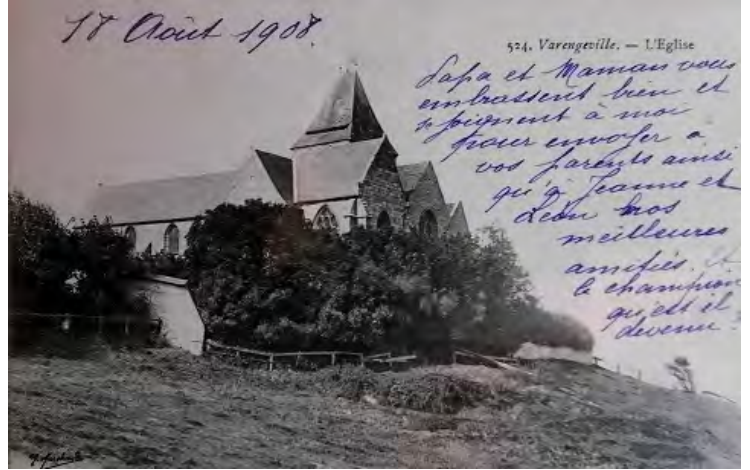 18 Août 1908.
524. Varengeville. — L'Eglise
Papa et Maman vous
embrassent bien et
se joignent à moi
pour envoyer à
vos parents ainsi
qu'à Jeanne et
Léon nos
meilleures
amitiés. Et
le champion
qu'est il
devenu ?